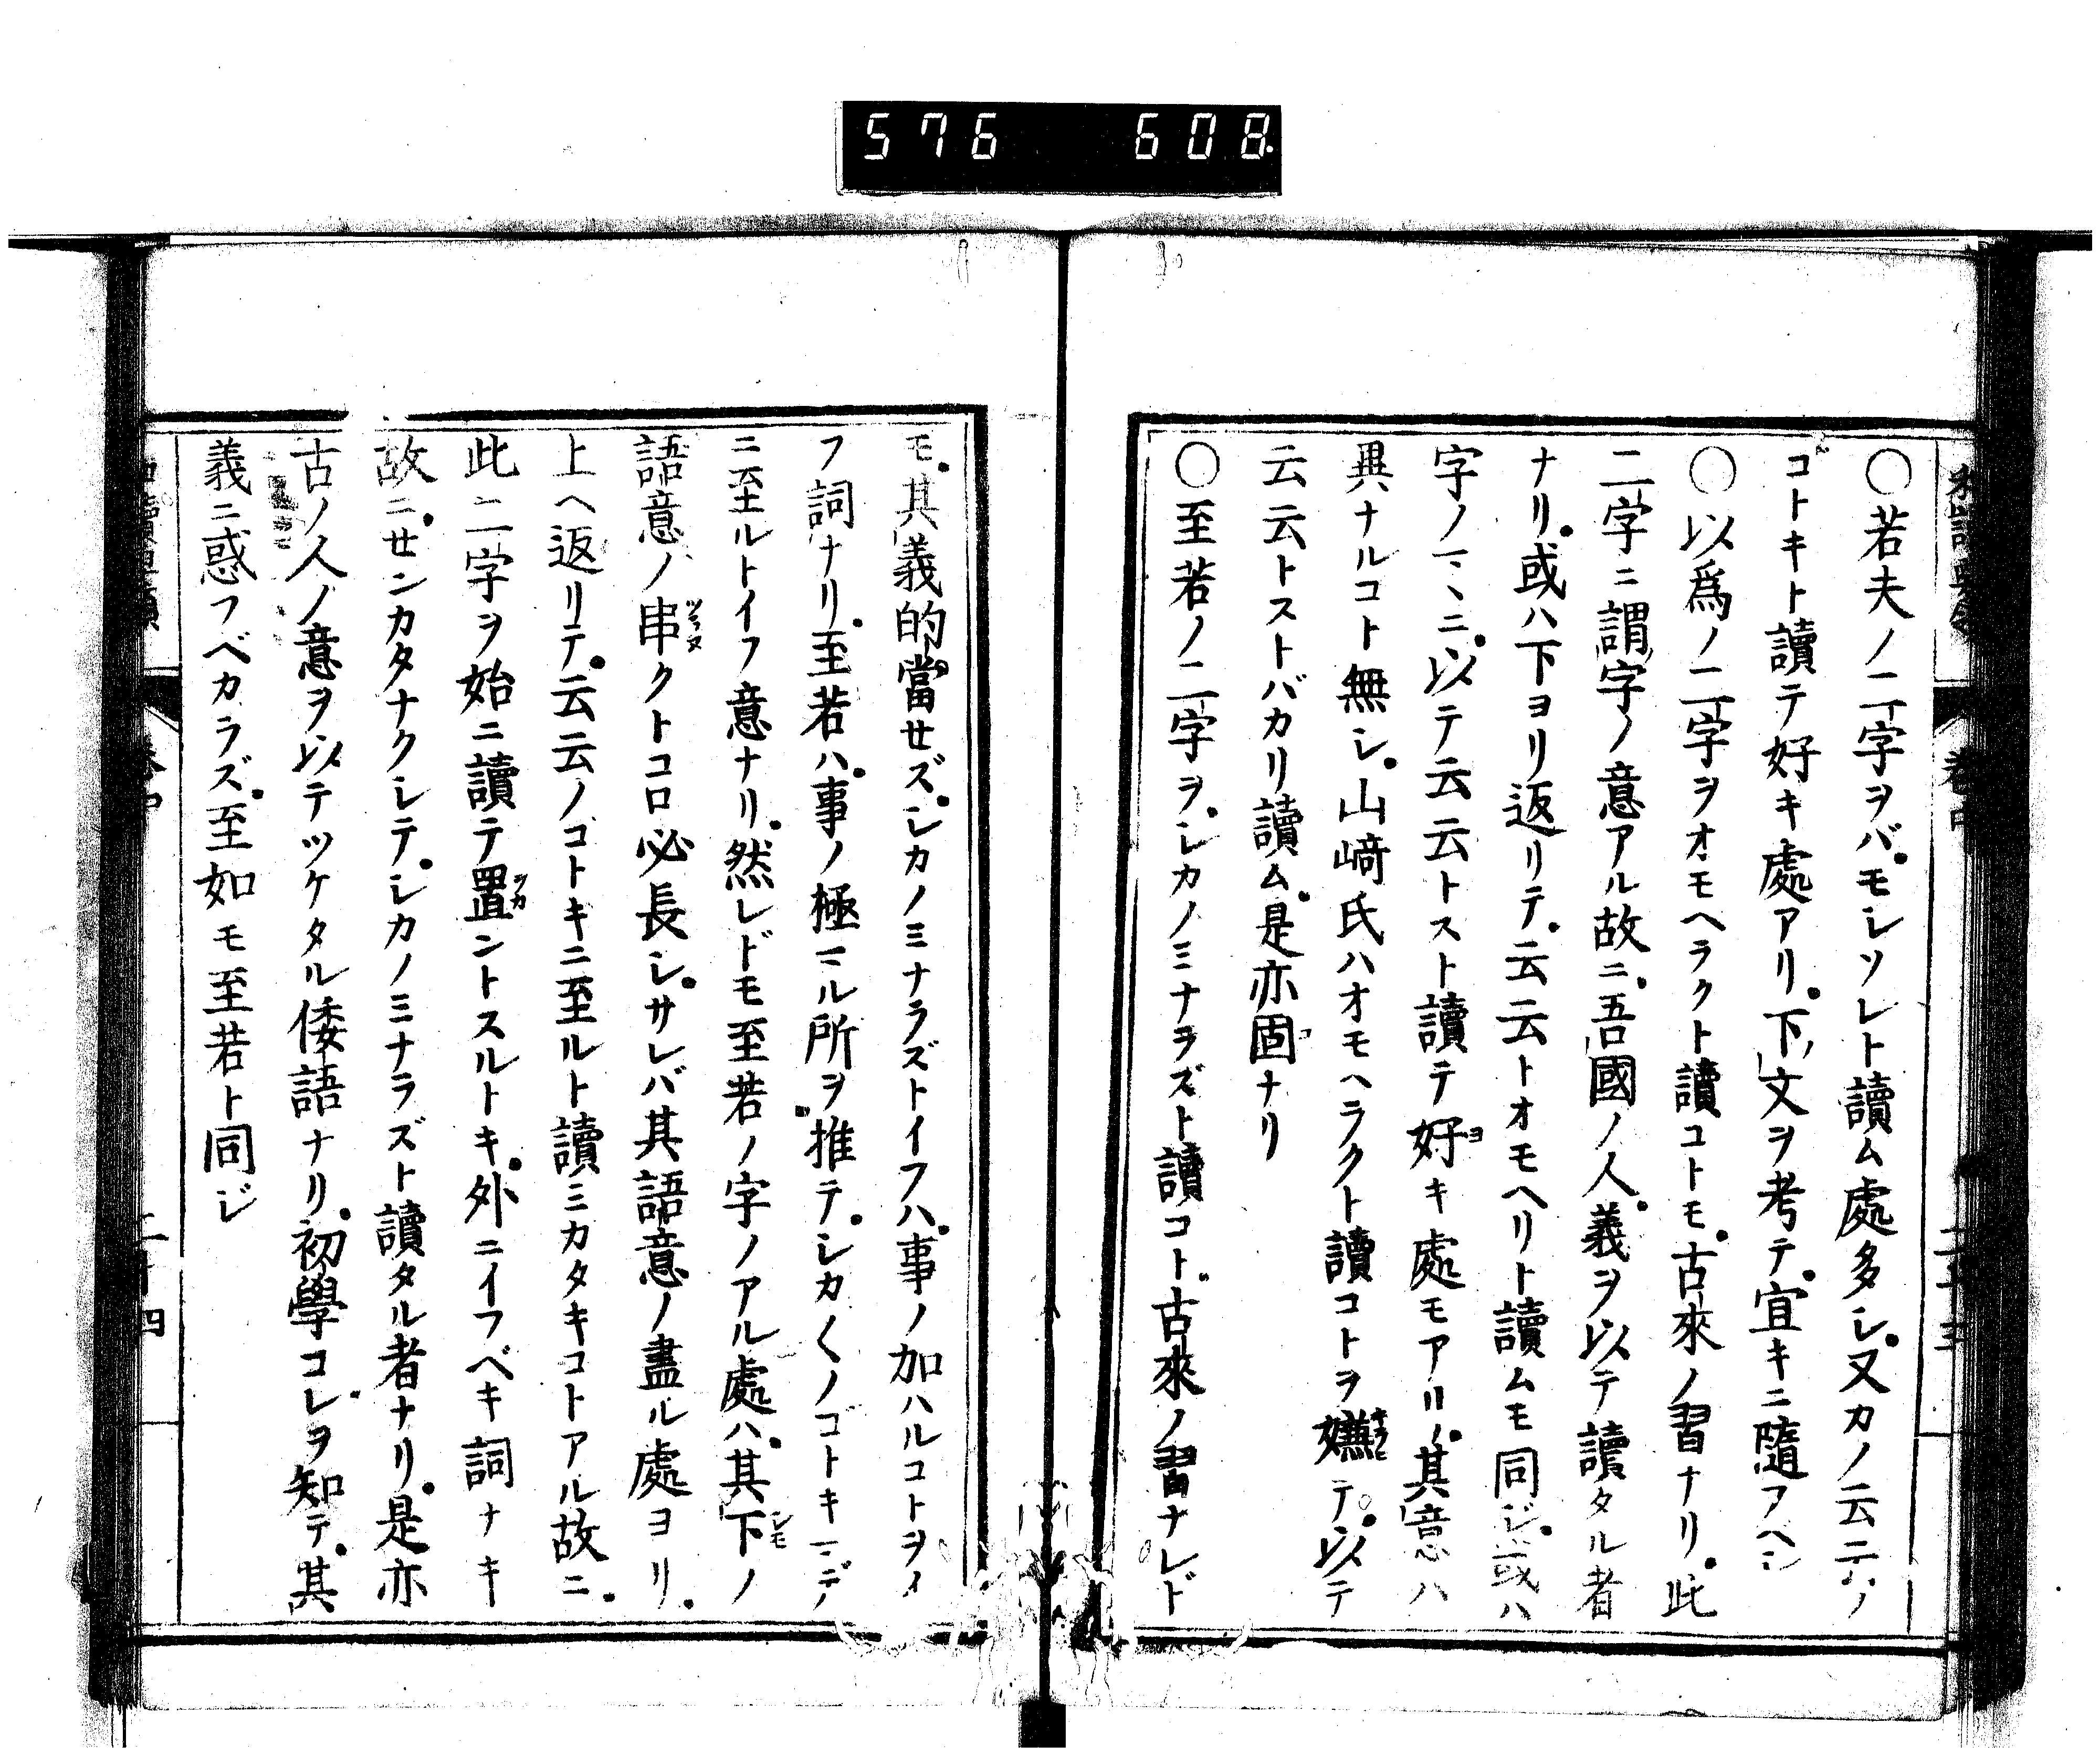 576 608
〇若夫ノ二字ヲバ。モシソレト讀ム處多シ。又カノ云云ノ
ゴトキト讀テ好キ處アリ。下文ヲ考テ。宜キニ隨フヘシ
〇以爲ノ二字ヲオモヘラクト讀コトモ。古來ノ習ナリ。此
二字ニ謂字ノ意アル故ニ。吾國ノ人。義ヲ以テ讀タル者
ナリ。或ハ下ヨリ返リテ。云云トオモヘリト讀ムモ同ジ。或ハ
字ノママニ。以テ云云トスト讀テ好キ處モアリ。其意ハ
異ナルコト無シ。山﨑氏ハオモヘラクト讀コトヲ嫌テ。以テ
云云トストバカリ讀ム。是亦固ナリ
〇至若ノ二字ヲ。シカノミナラズト讀コト。古來ノ習ナレド
モ。其義的當せズ。シカノミナラズトイフハ。事ノ加ハルコトヲイ
フ詞ナリ。至若ハ。事ノ極マル所ヲ推テ。シカ〱ノゴトキマデ
ニ至ルトイフ意ナリ。然レドモ至若ノ字ノアル處ハ。其下ノ
語意ノ串クトコロ必長シ。サレバ其語意ノ盡ル處ヨリ。
上ヘ返リテ。云云ノコトキニ至ルト讀ミカタキコトアル故ニ。
此二字ヲ始ニ讀テ置ントスルトキ。外ニイフベキ詞ナキ
故ニ。せンカタナクシテ。シカノミナラズト讀タル者ナリ。是亦
古ノ人ノ意ヲ以テツケタル倭語ナリ。初學コレヲ知テ。其
義ニ惑フベカラズ。至如モ至若ト同ジ